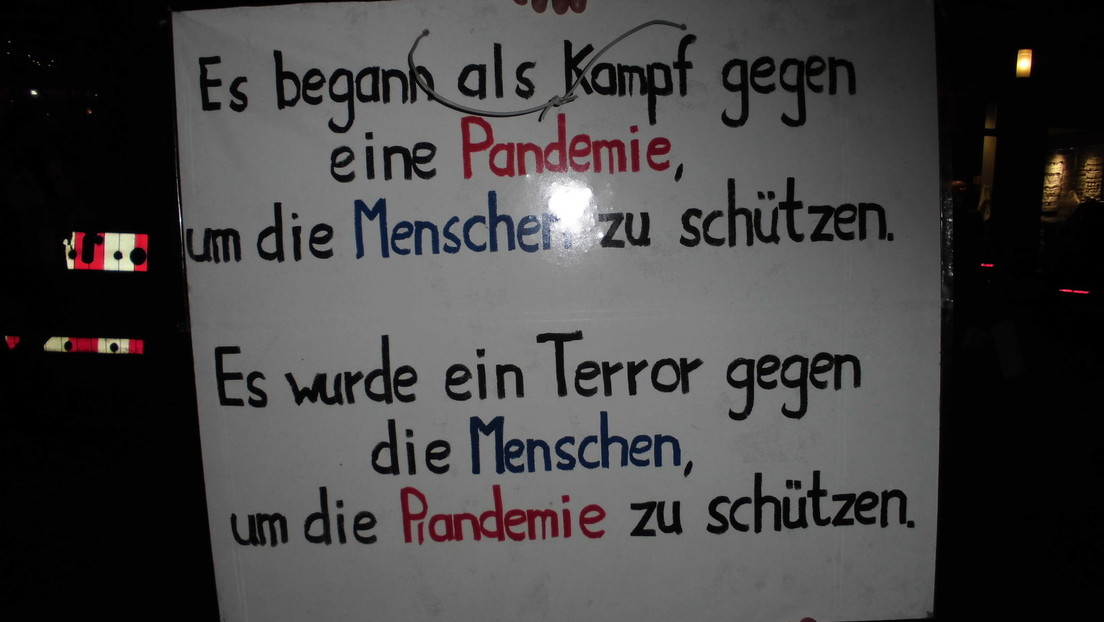 Es begann als Kampf gegen
eine Pandemie,
um die Menschen zu schützen.
Es wurde ein Terror gegen
die Menschen,
um die Plandemie zu schützen.